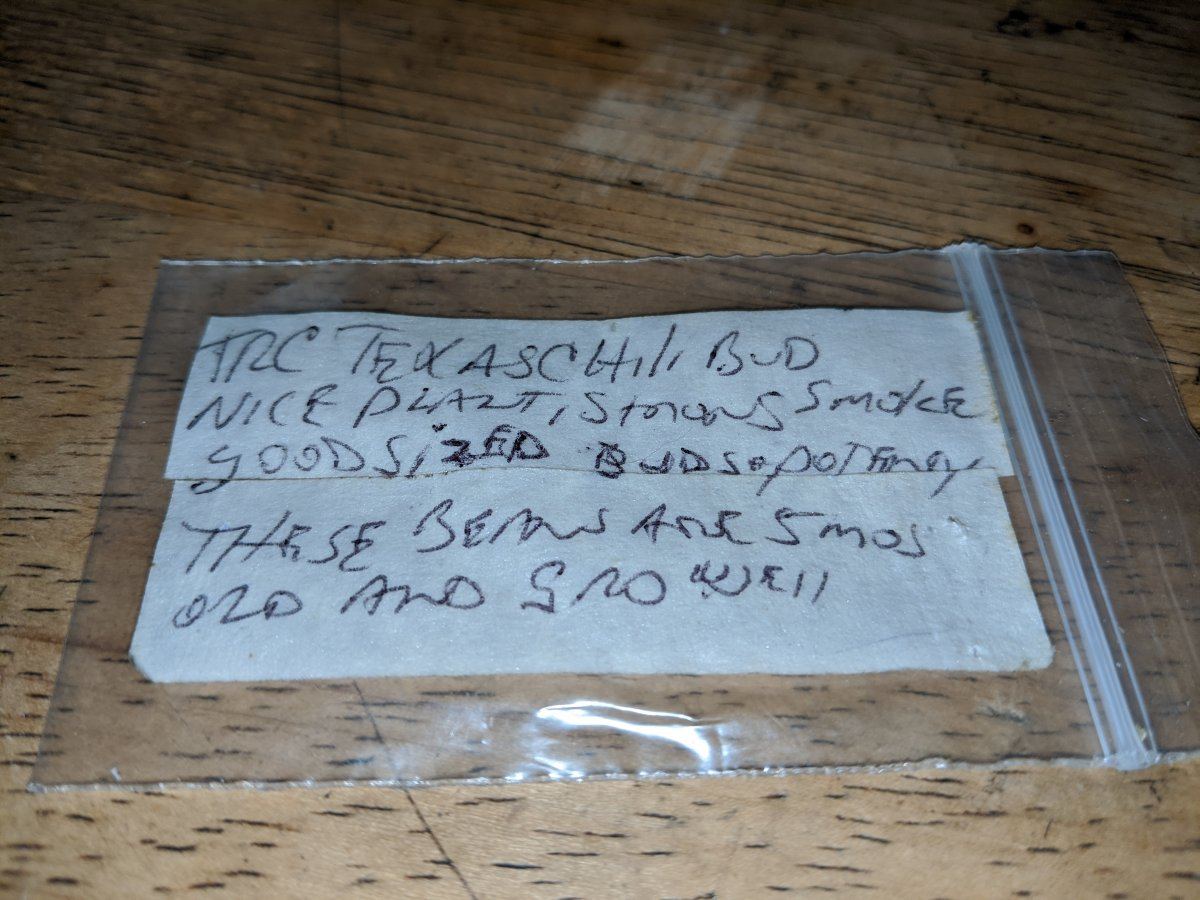 TRC TEXAS CHili BUD
NICE PLANT, STRONG SMOKE
GOOD SIZED BUDS & POTENCY
THESE BEANS ARE 5 MOS
OLD AND GRO WEll